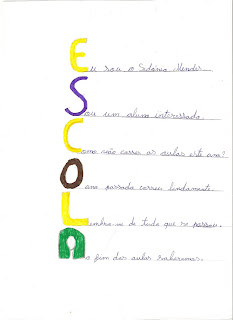 Eu sou o Sidónio Mendes
Sou um aluno interessado.
Como vão correr as aulas este ano?
O ano passado correu lindamente.
Lembro-me de tudo que se passou.
No fim das aulas saberemos.